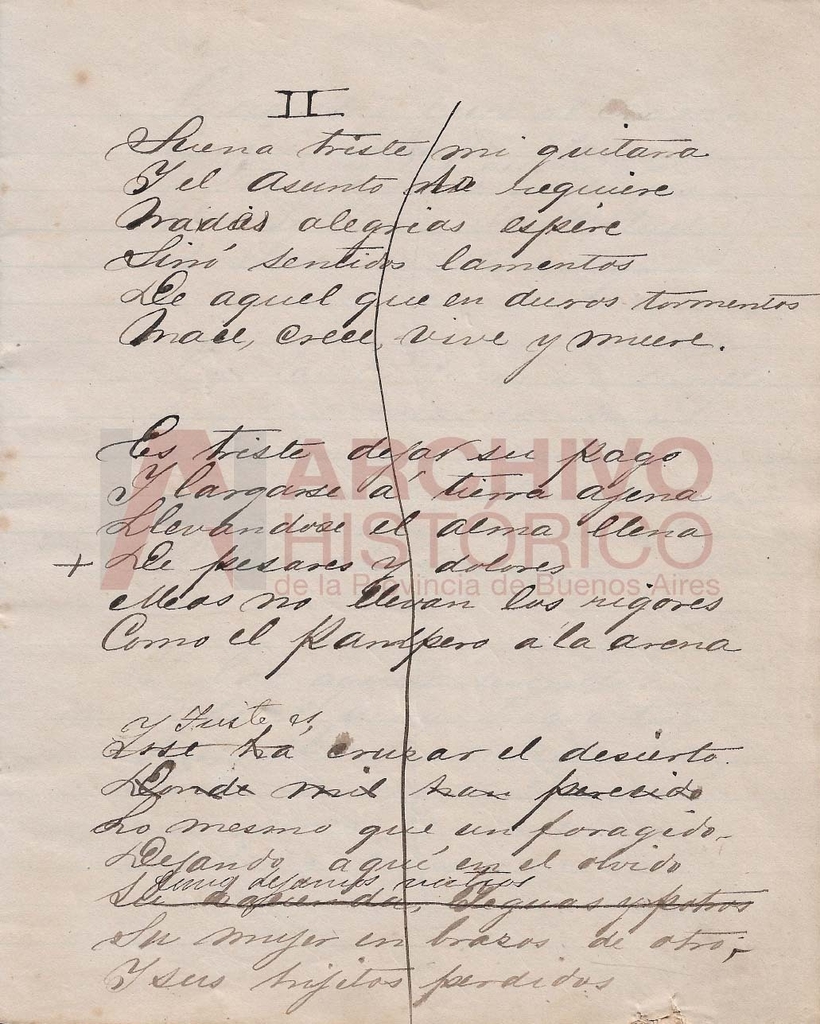 II
Suena triste mi guitarra
Y el asunto lo requiere
Nadies alegrias espere
Sinó sentidos lamentos
De aquel que en duros tormentos
Nace, crece, vive y muere.
Es triste dejar su pago
Y largarse á tierra agena
Llevandose el alma llena
+ De pesares y dolores
Mas nos llevan los rigores
Como el Pampero á la arena
y triste es,
cruzar el desierto
Donde mil han perecido
Lo mismo que un foragido
Dejando aquí en el olvido
dejamos
Su hacienda, yeguas y potros
Su muger en brazos de otro,
Y sus hijitos perdidos
ARCHIVO
HISTÓRICO
de la Provincia de Buenos Aires